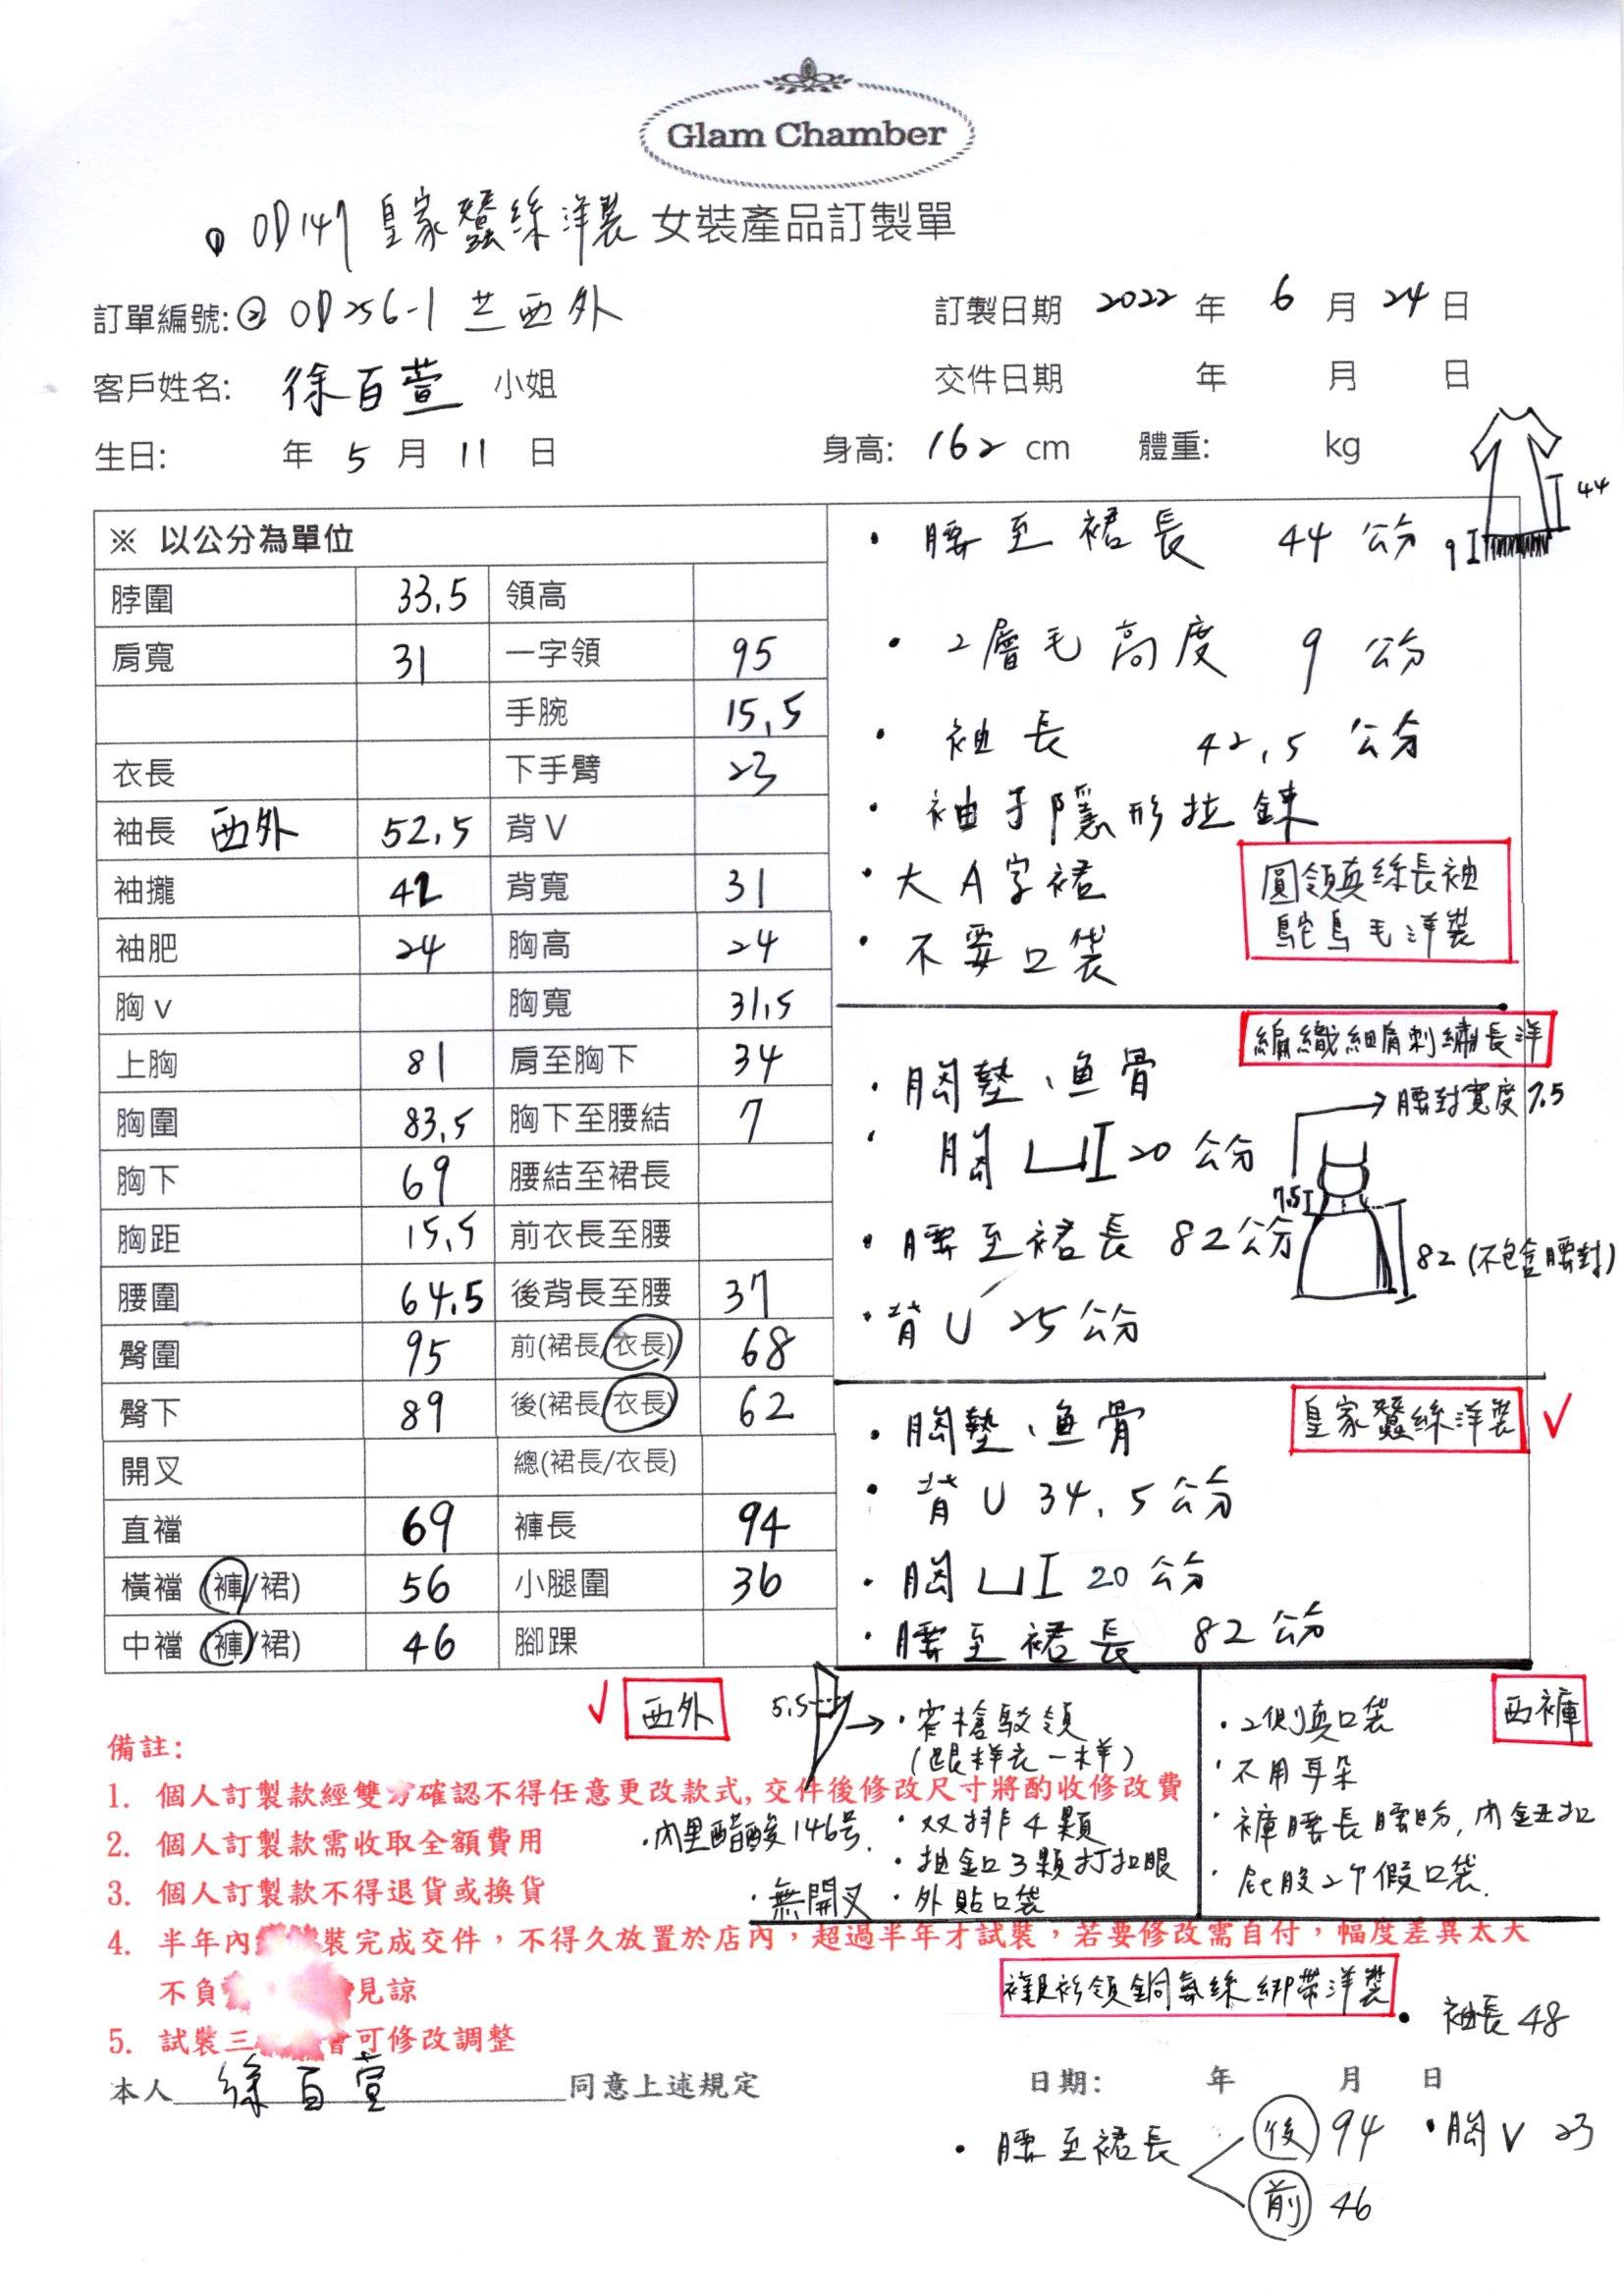 Glam Chamber
① OD147 皇家蠶絲洋裝 女裝產品訂製單
訂單編號: ② OD256-1 芒西外 訂製日期 2022 年 6 月 24 日
客戶姓名: 徐百萱 小姐 交件日期 年 月 日
生日: 年 5 月 11 日 身高: 162 cm 體重: kg
44
9
※ 以公分為單位
脖圍 33.5 領高
肩寬 31 一字領 95
手腕 15.5
衣長 下手臂 23
袖長 西外 52.5 背V
袖攏 42 背寬 31
袖肥 24 胸高 24
胸v 胸寬 31.5
上胸 81 肩至胸下 34
胸圍 83.5 胸下至腰結 7
胸下 69 腰結至裙長
胸距 15.5 前衣長至腰
腰圍 64.5 後背長至腰 37
臀圍 95 前(裙長/衣長) 68
臀下 89 後(裙長/衣長) 62
開叉 總(裙長/衣長)
直襠 69 褲長 94
橫襠 (褲/裙) 56 小腿圍 36
中襠 (褲/裙) 46 腳踝
• 腰至裙長 44 公分
• 2層毛高度 9 公分
• 袖長 42.5 公分
• 袖子隱形拉鍊
• 大A字裙
• 不要口袋
圓領真絲長袖
鴕鳥毛洋裝
編織細肩刺繡長洋
• 胸墊、魚骨
• 胸 20 公分
• 腰至裙長 82公分
• 背U 25公分
腰封寬度7.5
7.5
82 (不包含腰封)
皇家蠶絲洋裝 ✓
• 胸墊、魚骨
• 背U 34.5公分
• 胸 20 公分
• 腰至裙長 82公分
✓ 西外
5.5
• 窄槍駁領
(跟样衣一样)
• 內里醋酸146号.
• 双排4顆
• 抽釦3顆打扣眼
• 無開叉 • 外貼口袋
西褲
• 2側真口袋
• 不用耳朵
• 褲腰長腰, 內鈕扣
• 屁股2个假口袋.
備註:
1. 個人訂製款經雙 確認不得任意更改款式, 交件後修改尺寸將酌收修改費
2. 個人訂製款需收取全額費用
3. 個人訂製款不得退貨或換貨
4. 半年內 裝完成交件，不得久放置於店內，超過半年才試裝，若要修改需自付，幅度差異太大
不負 見諒
5. 試裝三 會可修改調整
襯衫領銅氨絲綁帶洋裝
• 袖長48
本人 徐百萱 同意上述規定 日期: 年 月 日
• 腰至裙長 後 94 • 胸V 23
前 46